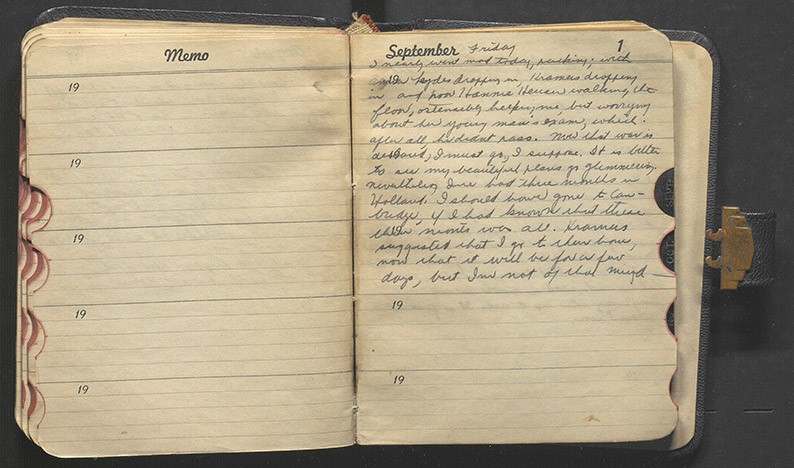 Memo
19
19
19
19
19
September Friday 1
I nearly went mad today, packing; with
19 Hydes dropping in, Kramers dropping
in and poor Hannie Heusen walking the
floor, ostensibly helping me but worrying
about her young man's exam, which
after all he didn't pass. Now that war is
19
declared, I must go, I suppose. It is bitter
to see my beautiful plans go glimmering.
nevertheless I've had three months in
Holland. I should have gone to Cam-
bridge, if I had known that these
19
three months was all. Kramers
suggested that I go to their house,
now that it will be for a few
days, but I'm not of that mind
19
19